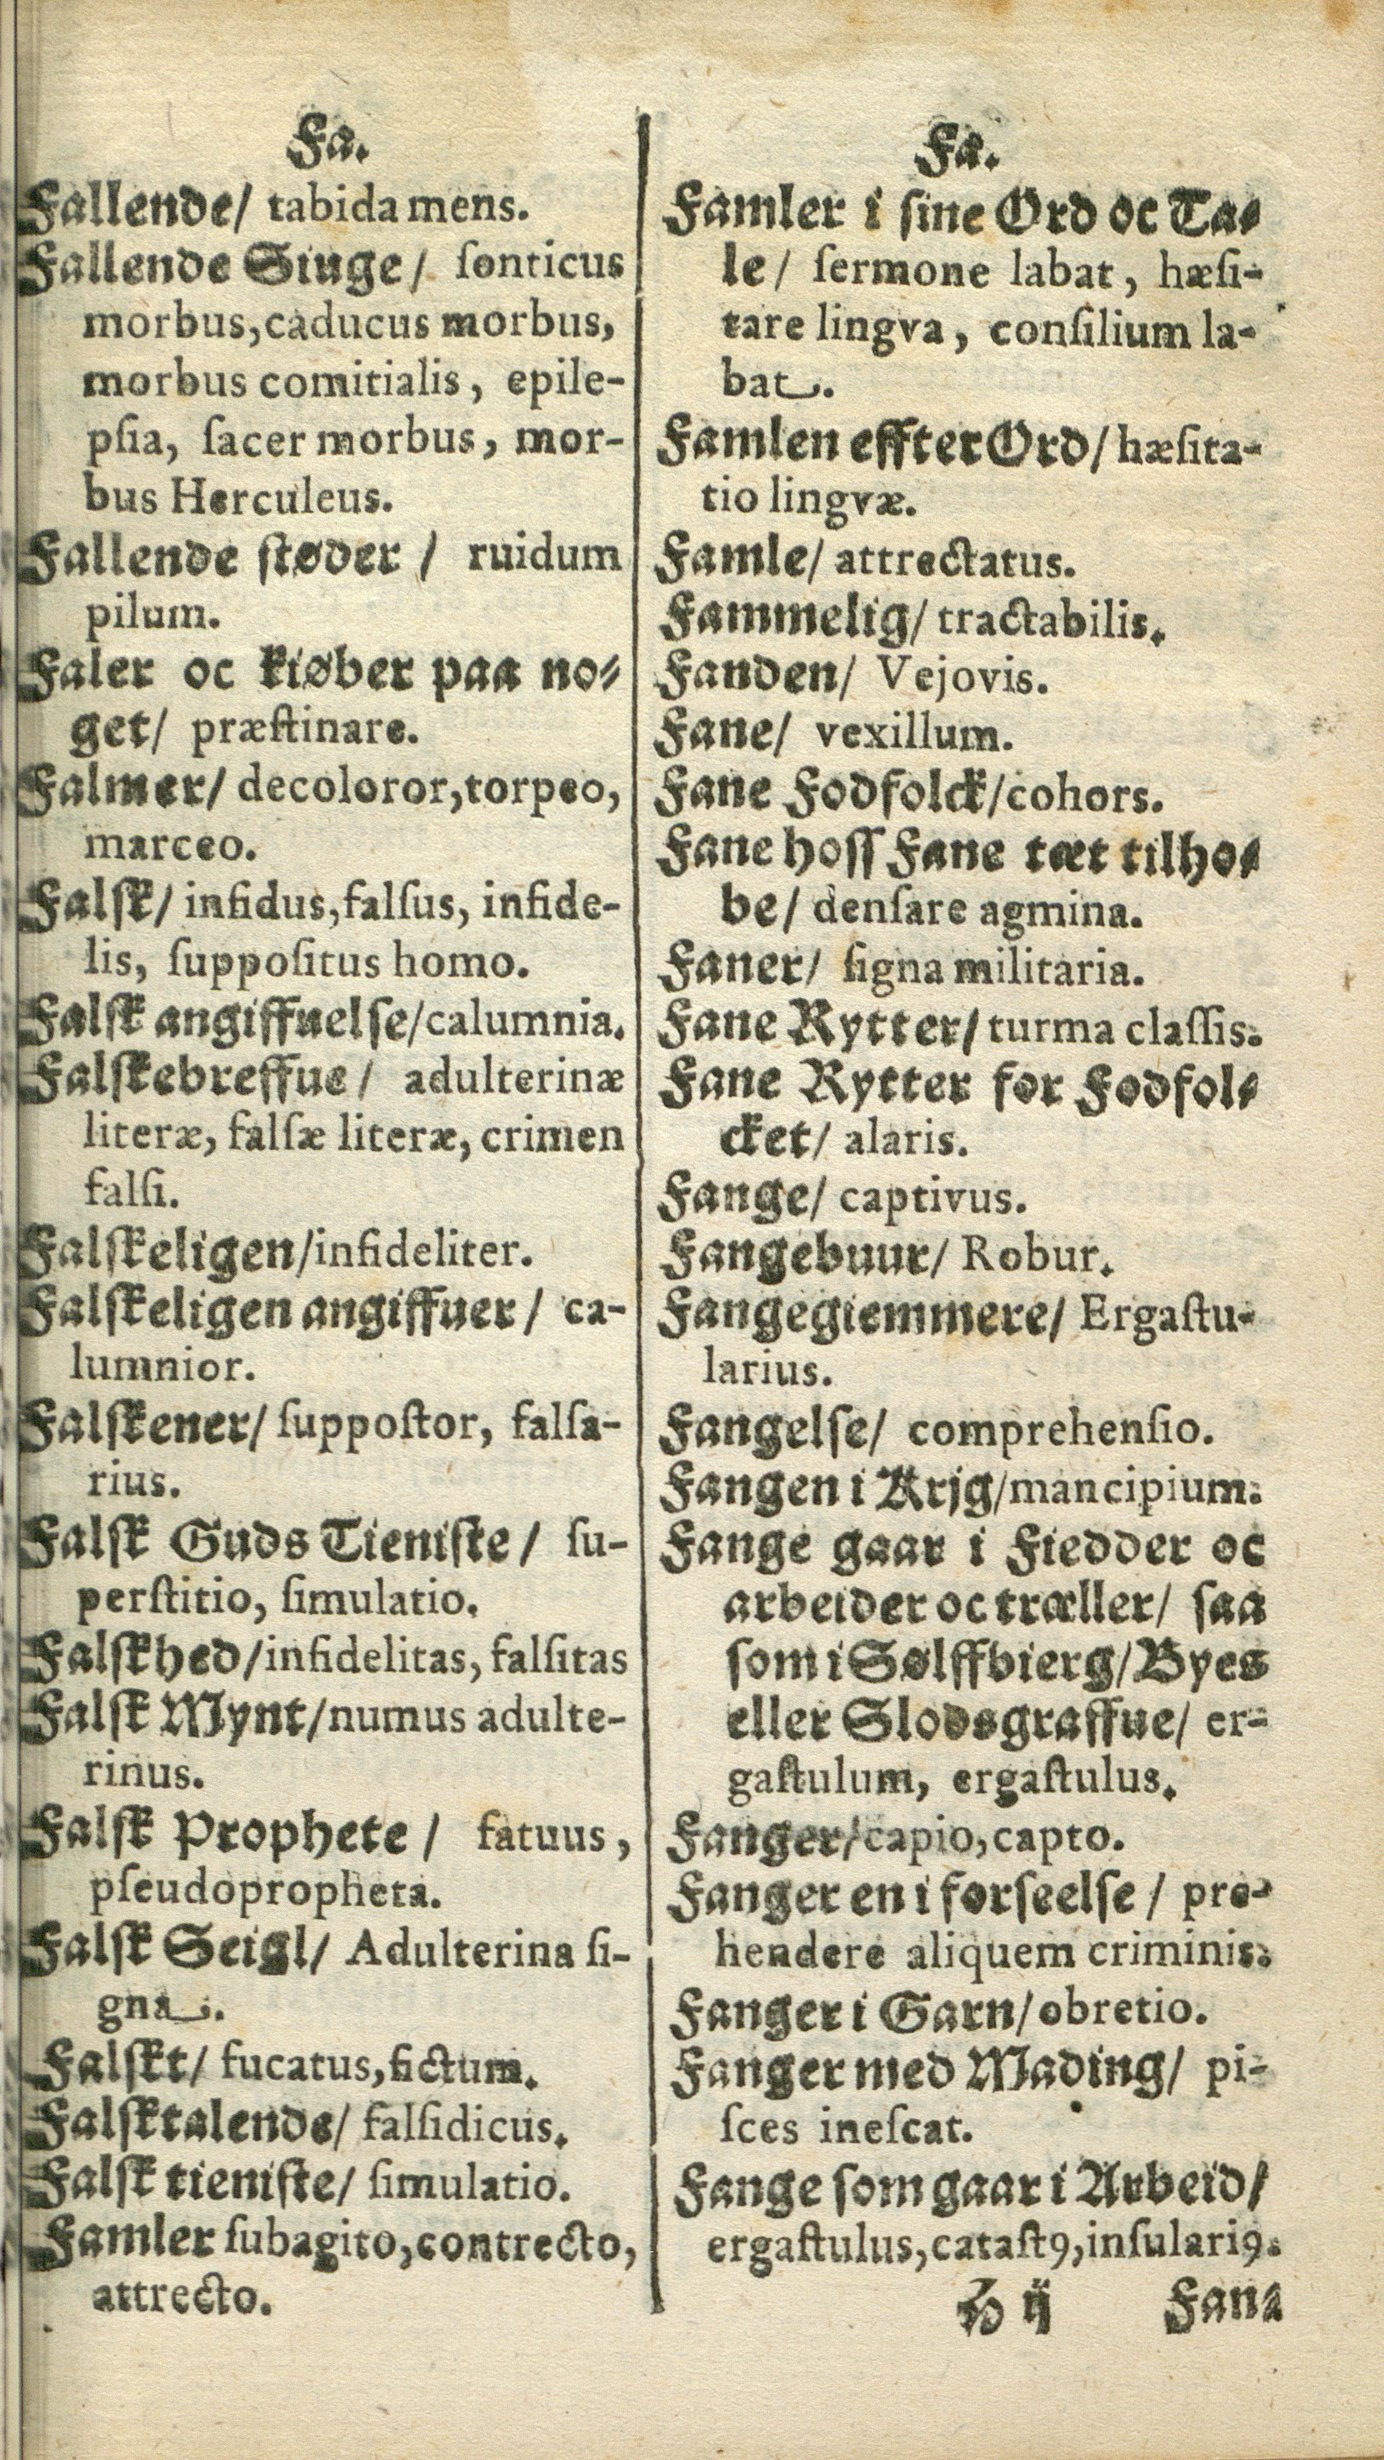 Fa.
Fallende/ tabida mens.
Fallende Siuge/ ſonticus
morbus, caducus morbus,
morbus comitialis, epile-
pſia, ſacer morbus, mor-
bus Herculeus.
Fallende ſtøder / ruidum
pilum.
Faler oc kiøber paa no-
get/ præſtinare.
Falmer/ decoloror, torpeo,
marceo.
Falſk/ infidus, falſus, infide-
lis, ſuppoſitus homo.
Falſk angiffuelſe/ calumnia.
Falſkebreffue/ adulterinæ
literæ, falſæ literæ, crimen
falſi.
Falſkeligen/ infideliter.
Falſkeligen angiffuer/ ca-
lumnior.
Falſkener/ ſuppoſtor, falſa-
rius.
Falſk Guds Tieniſte/ ſu-
perſtitio, ſimulatio.
Falſkhed/ infidelitas, falſitas
Falſk Mynt/ numus adulte-
rinus.
Falſk Prophete / fatuus,
pſeudopropheta.
Falſk Seigl/ Adulterina ſi-
gna.
Falſkt/ fucatus, fictum.
Falſktalende/ falſidicus.
Falſk tieniſte/ ſimulatio.
Famler ſubagito, contrecto,
attrecto.
Fa.
Famler i ſine Ord oc Ta-
le/ ſermone labat, hæſi-
tare lingva, conſilium la-
bat.
Famlen effter Ord/ hæſita-
tio lingvæ.
Famle/ attrectatus.
Fammelig/ tractabilis.
Fanden/ Vejovis.
Fane/ vexillum.
Fane Fodfolck/ cohors.
Fane hoſſ Fane tæt tilho-
be/ denſare agmina.
Faner/ ſigna militaria.
Fane Rytter/ turma claſſis.
Fane Rytter for Fodfol-
cket/ alaris.
Fange/ captivus.
Fangebuur/ Robur.
Fangegiemmere/ Ergaſtu-
larius.
Fangelſe/ comprehenſio.
Fangen i Krjg/ mancipium.
Fange gaar i Fiedder oc
arbeider oc træller/ ſaa
ſom i Sølffbierg/ Byes
eller Slodsgraffue/ er-
gaſtulum, ergaſtulus.
Fanger/ capio, capto.
Fanger en i forſeelſe / pre-
hendere aliquem criminis.
Fanger i Garn/ obretio.
Fanger med Mading/ pi-
ſces ineſcat.
Fange ſom gaar i Arbeid/
ergaſtulus, cataſtꝰ, inſulariꝰ.
H ij Fan-